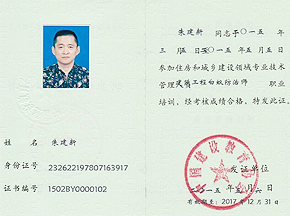 朱建新 同志于二〇一五年
三月五日至二〇一五年五月五日
参加住房和城乡建设领域专业技术
管理建筑工程白蚁防治师 职业
培训，经考核成绩合格，特发此证。
姓 名 朱建新
身份证号 232622197807163917
证书编号 1502BY0000102
发证单位
二〇一五年五月六日
有效期至：2017年12月31日